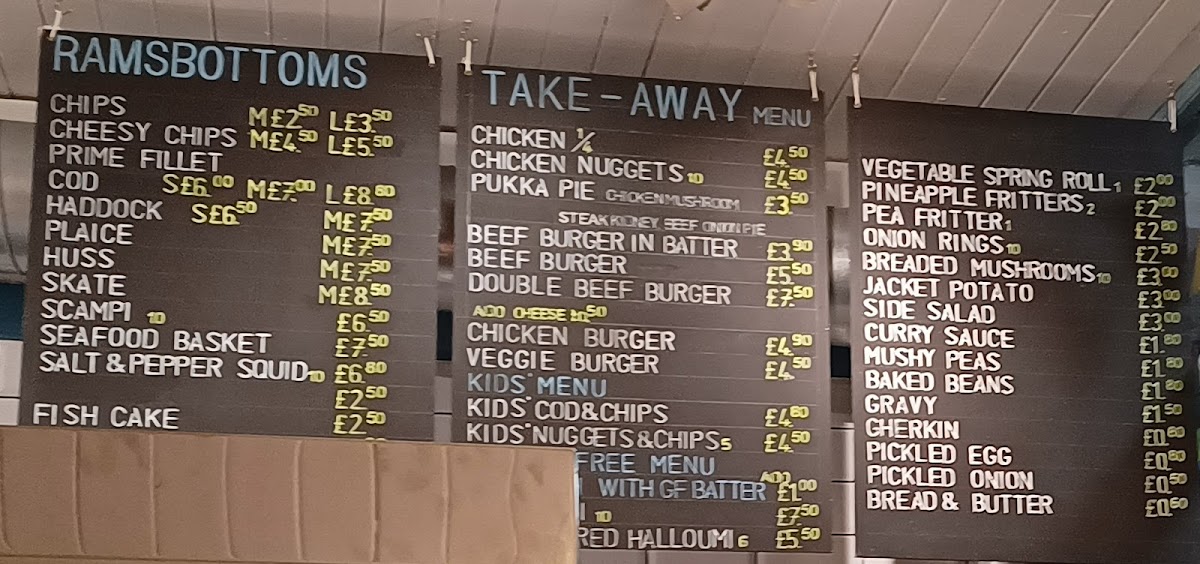 RAMSBOTTOMS
CHIPS M£2.50 L£3.50
CHEESY CHIPS M£4.50 L£5.50
PRIME FILLET
COD S£6.00 M£7.00 L£8.60
HADDOCK S£6.50 M£7.50
PLAICE M£7.50
HUSS M£7.50
SKATE M£8.50
SCAMPI 10 £6.50
SEAFOOD BASKET £7.50
SALT & PEPPER SQUID 10 £6.80
£2.50
FISH CAKE £2.50
TAKE-AWAY MENU
CHICKEN ¼ £4.50
CHICKEN NUGGETS 10 £4.50
PUKKA PIE CHICKEN MUSHROOM £3.50
STEAK KIDNEY BEEF ONION PIE
BEEF BURGER IN BATTER £3.90
BEEF BURGER £5.50
DOUBLE BEEF BURGER £7.50
ADD CHEESE £0.50
CHICKEN BURGER £4.90
VEGGIE BURGER £4.50
KIDS' MENU
KIDS' COD & CHIPS £4.60
KIDS' NUGGETS & CHIPS 5 £4.50
FREE MENU
WITH GF BATTER ADD £1.00
10 £7.50
RED HALLOUMI 6 £5.50
VEGETABLE SPRING ROLL 1 £2.00
PINEAPPLE FRITTERS 2 £2.00
PEA FRITTER 1 £2.80
ONION RINGS 10 £2.50
BREADED MUSHROOMS 10 £3.00
JACKET POTATO £3.00
SIDE SALAD £3.00
CURRY SAUCE £1.80
MUSHY PEAS £1.80
BAKED BEANS £1.80
GRAVY £1.50
GHERKIN £0.80
PICKLED EGG £0.80
PICKLED ONION £0.50
BREAD & BUTTER £0.60